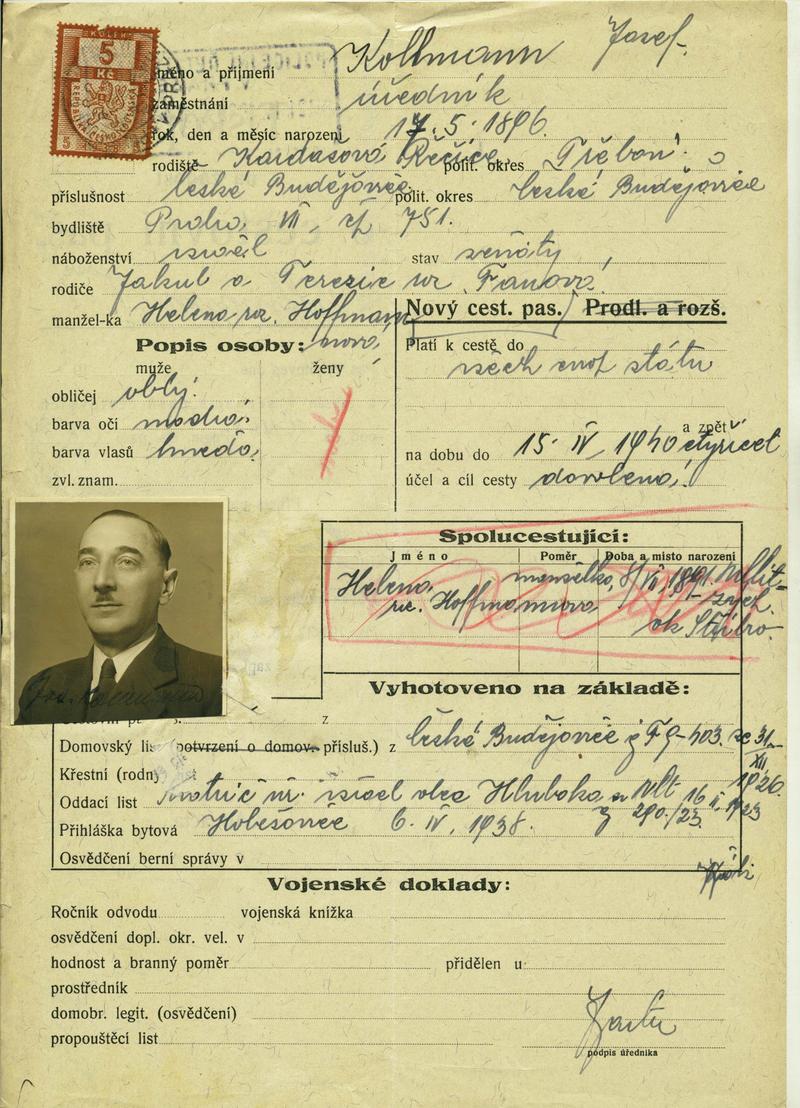 KOLEK
5
Kč
REPUBLIKA ČESKOSLOVENSKÁ
5 5
jméno a příjmení Kollmann Josef.
zaměstnání úředník
rok, den a měsíc narození 17. 5. 1896.
rodiště Kardašová Řěčice, polit. okres Třeboň
příslušnost České Budějovice, polit. okres České Budějovice
bydliště Praha VII, čp 751.
náboženství israel stav ženatý
rodiče Jakub a Terezie roz. Fanová
manžel-ka Helena roz. Hoffmannová
Nový cest. pas. / Prodl. a rozš.
Popis osoby:
muže ženy
Platí k cestě do všech států
obličej oblý.
barva očí modrá.
barva vlasů hnědá.
zvl. znam.
a zpět
na dobu do 15. IV. 1940 čtyřicet
účel a cíl cesty dovolená.
Spolucestující:
Jméno Poměr Doba a místo narození
Helena manželka, VII. 1891.
roz. Hoffmannová
ok Stříbro.
Vyhotoveno na základě:
z
Domovský lis (potvrzení o domov. přísluš.) z České Budějovice 31.
XII
1926.
Křestní (rodný)
Oddací list israel obce Hluboká n Vlt 16
290./23. 1923
Přihláška bytová Holešovice 6. IV. 1938.
Osvědčení berní správy v
Vojenské doklady:
Ročník odvodu vojenská knížka
osvědčení dopl. okr. vel. v
hodnost a branný poměr přidělen u
prostředník
domobr. legit. (osvědčení)
propouštěcí list
podpis úředníka